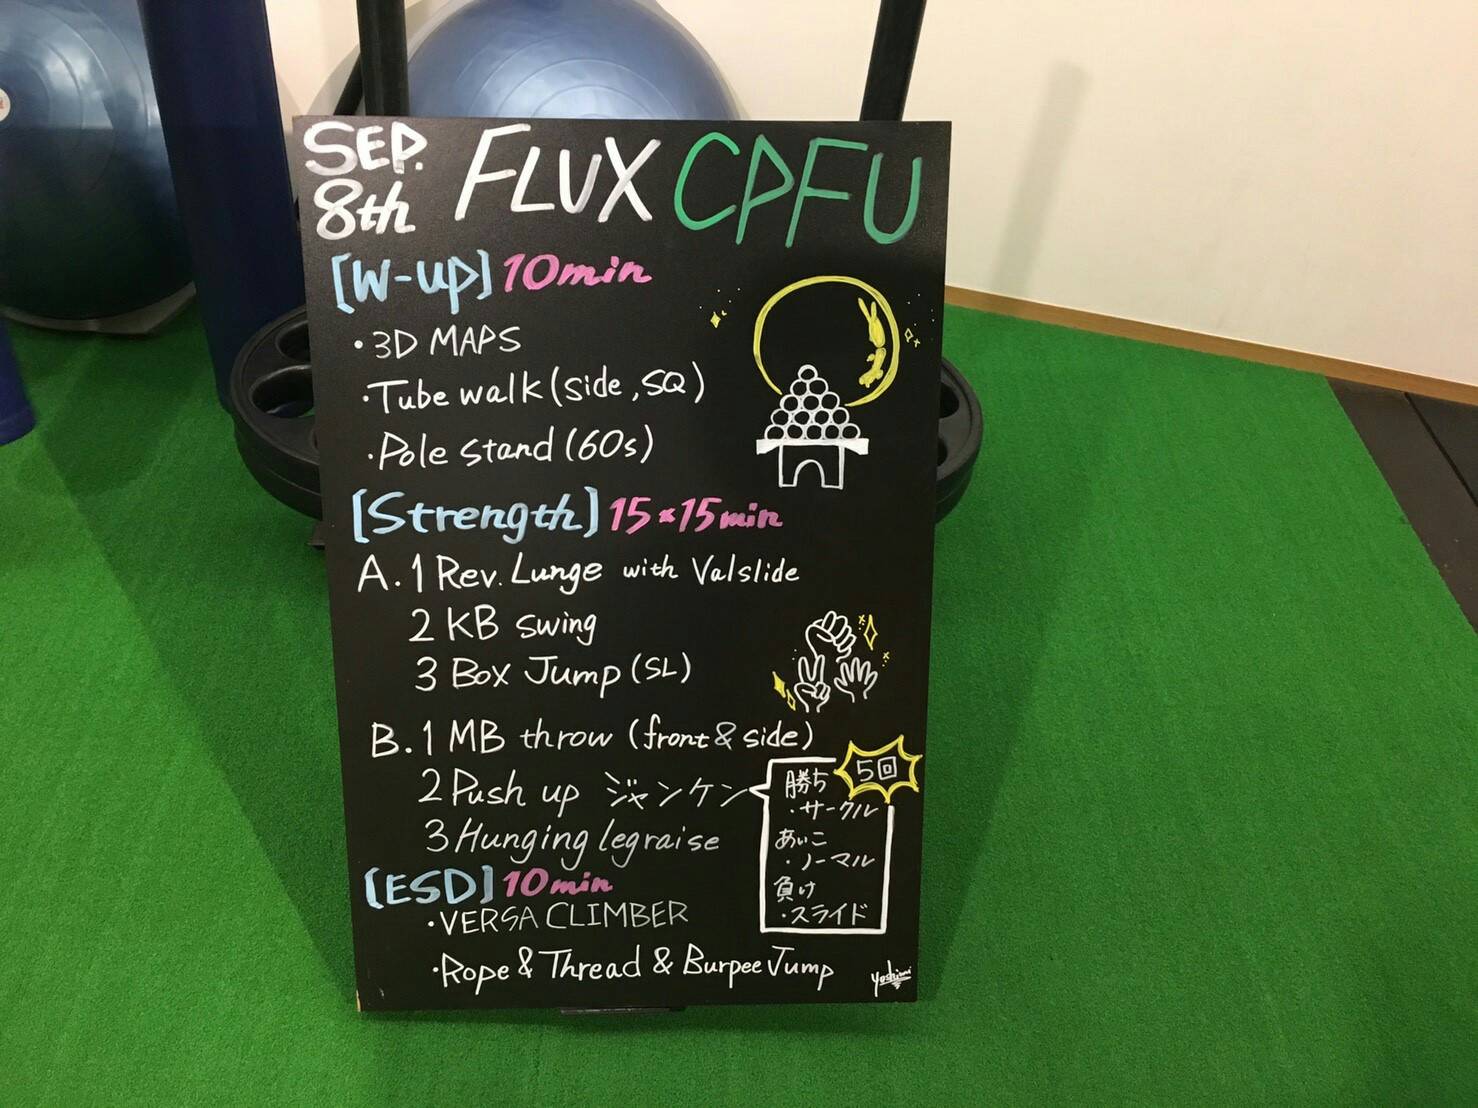 SEP. 8th FLUX CPFU
[W-up] 10min
・3D MAPS
・Tube walk (side, SQ)
・Pole stand (60s)
[Strength] 15×15min
A. 1 Rev. Lunge with Valslide
2 KB swing
3 Box Jump (SL)
B. 1 MB throw (front & side)
2 Push up ジャンケン
3 Hunging legraise
5回
勝ち
・サークル
あいこ
・ノーマル
負け
・スライド
[ESD] 10min
・VERSA CLIMBER
・Rope & Thread & Burpee Jump
Yoshimi